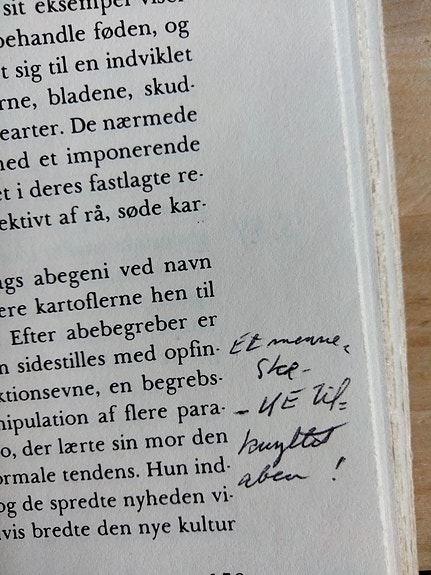 sit eksempel viser
behandle føden, og
t sig til en indviklet
rne, bladene, skud-
earter. De nærmede
ned et imponerende
et i deres fastlagte re-
ektivt af rå, søde kar-
ngs abegeni ved navn
ere kartoflerne hen til
Efter abebegreber er
n sidestilles med opfin-
ktionsevne, en begrebs-
nipulation af flere para-
o, der lærte sin mor den
ormale tendens. Hun ind-
og de spredte nyheden vi-
vis bredte den nye kultur
Et menne-
ske-
til-
knyttet
aben !